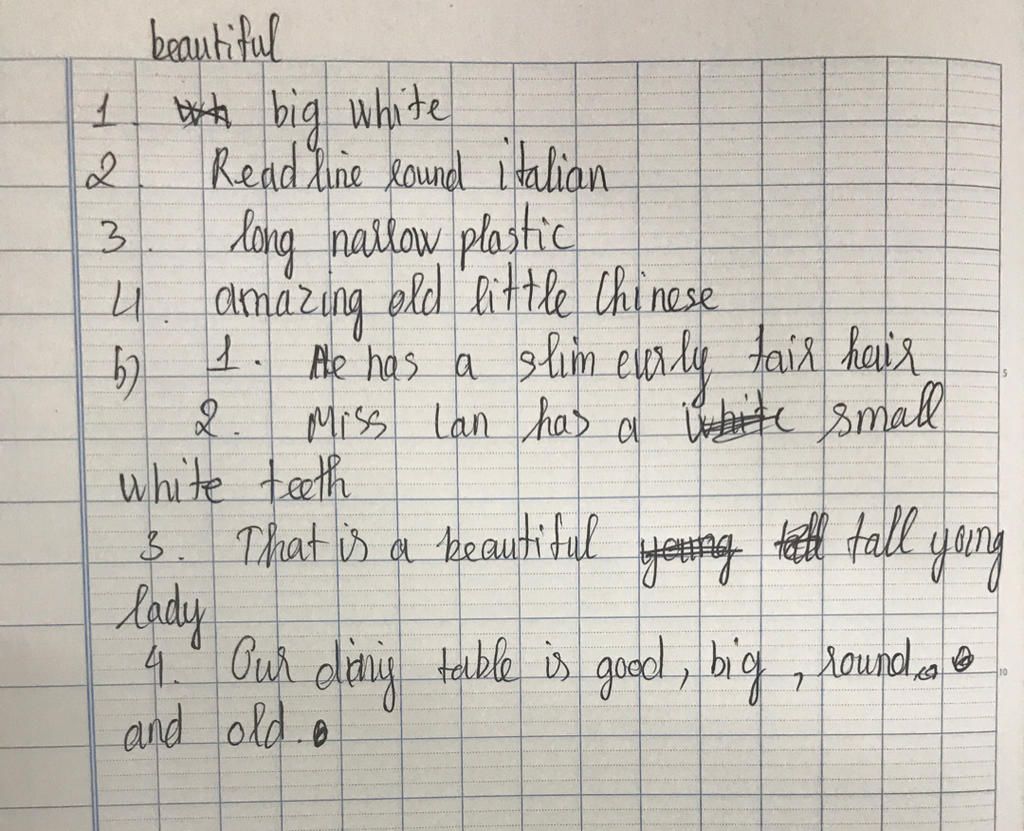 beautiful
1 big white
2. Read line round italian
3. long narrow plastic
4. amazing old little Chinese
b) 1. He has a slim curly fair hair
2. Miss lan has a small
white teeth
3. That is a beautiful tall yoing
lady
4. Our dinig table is good, big, round
and old.